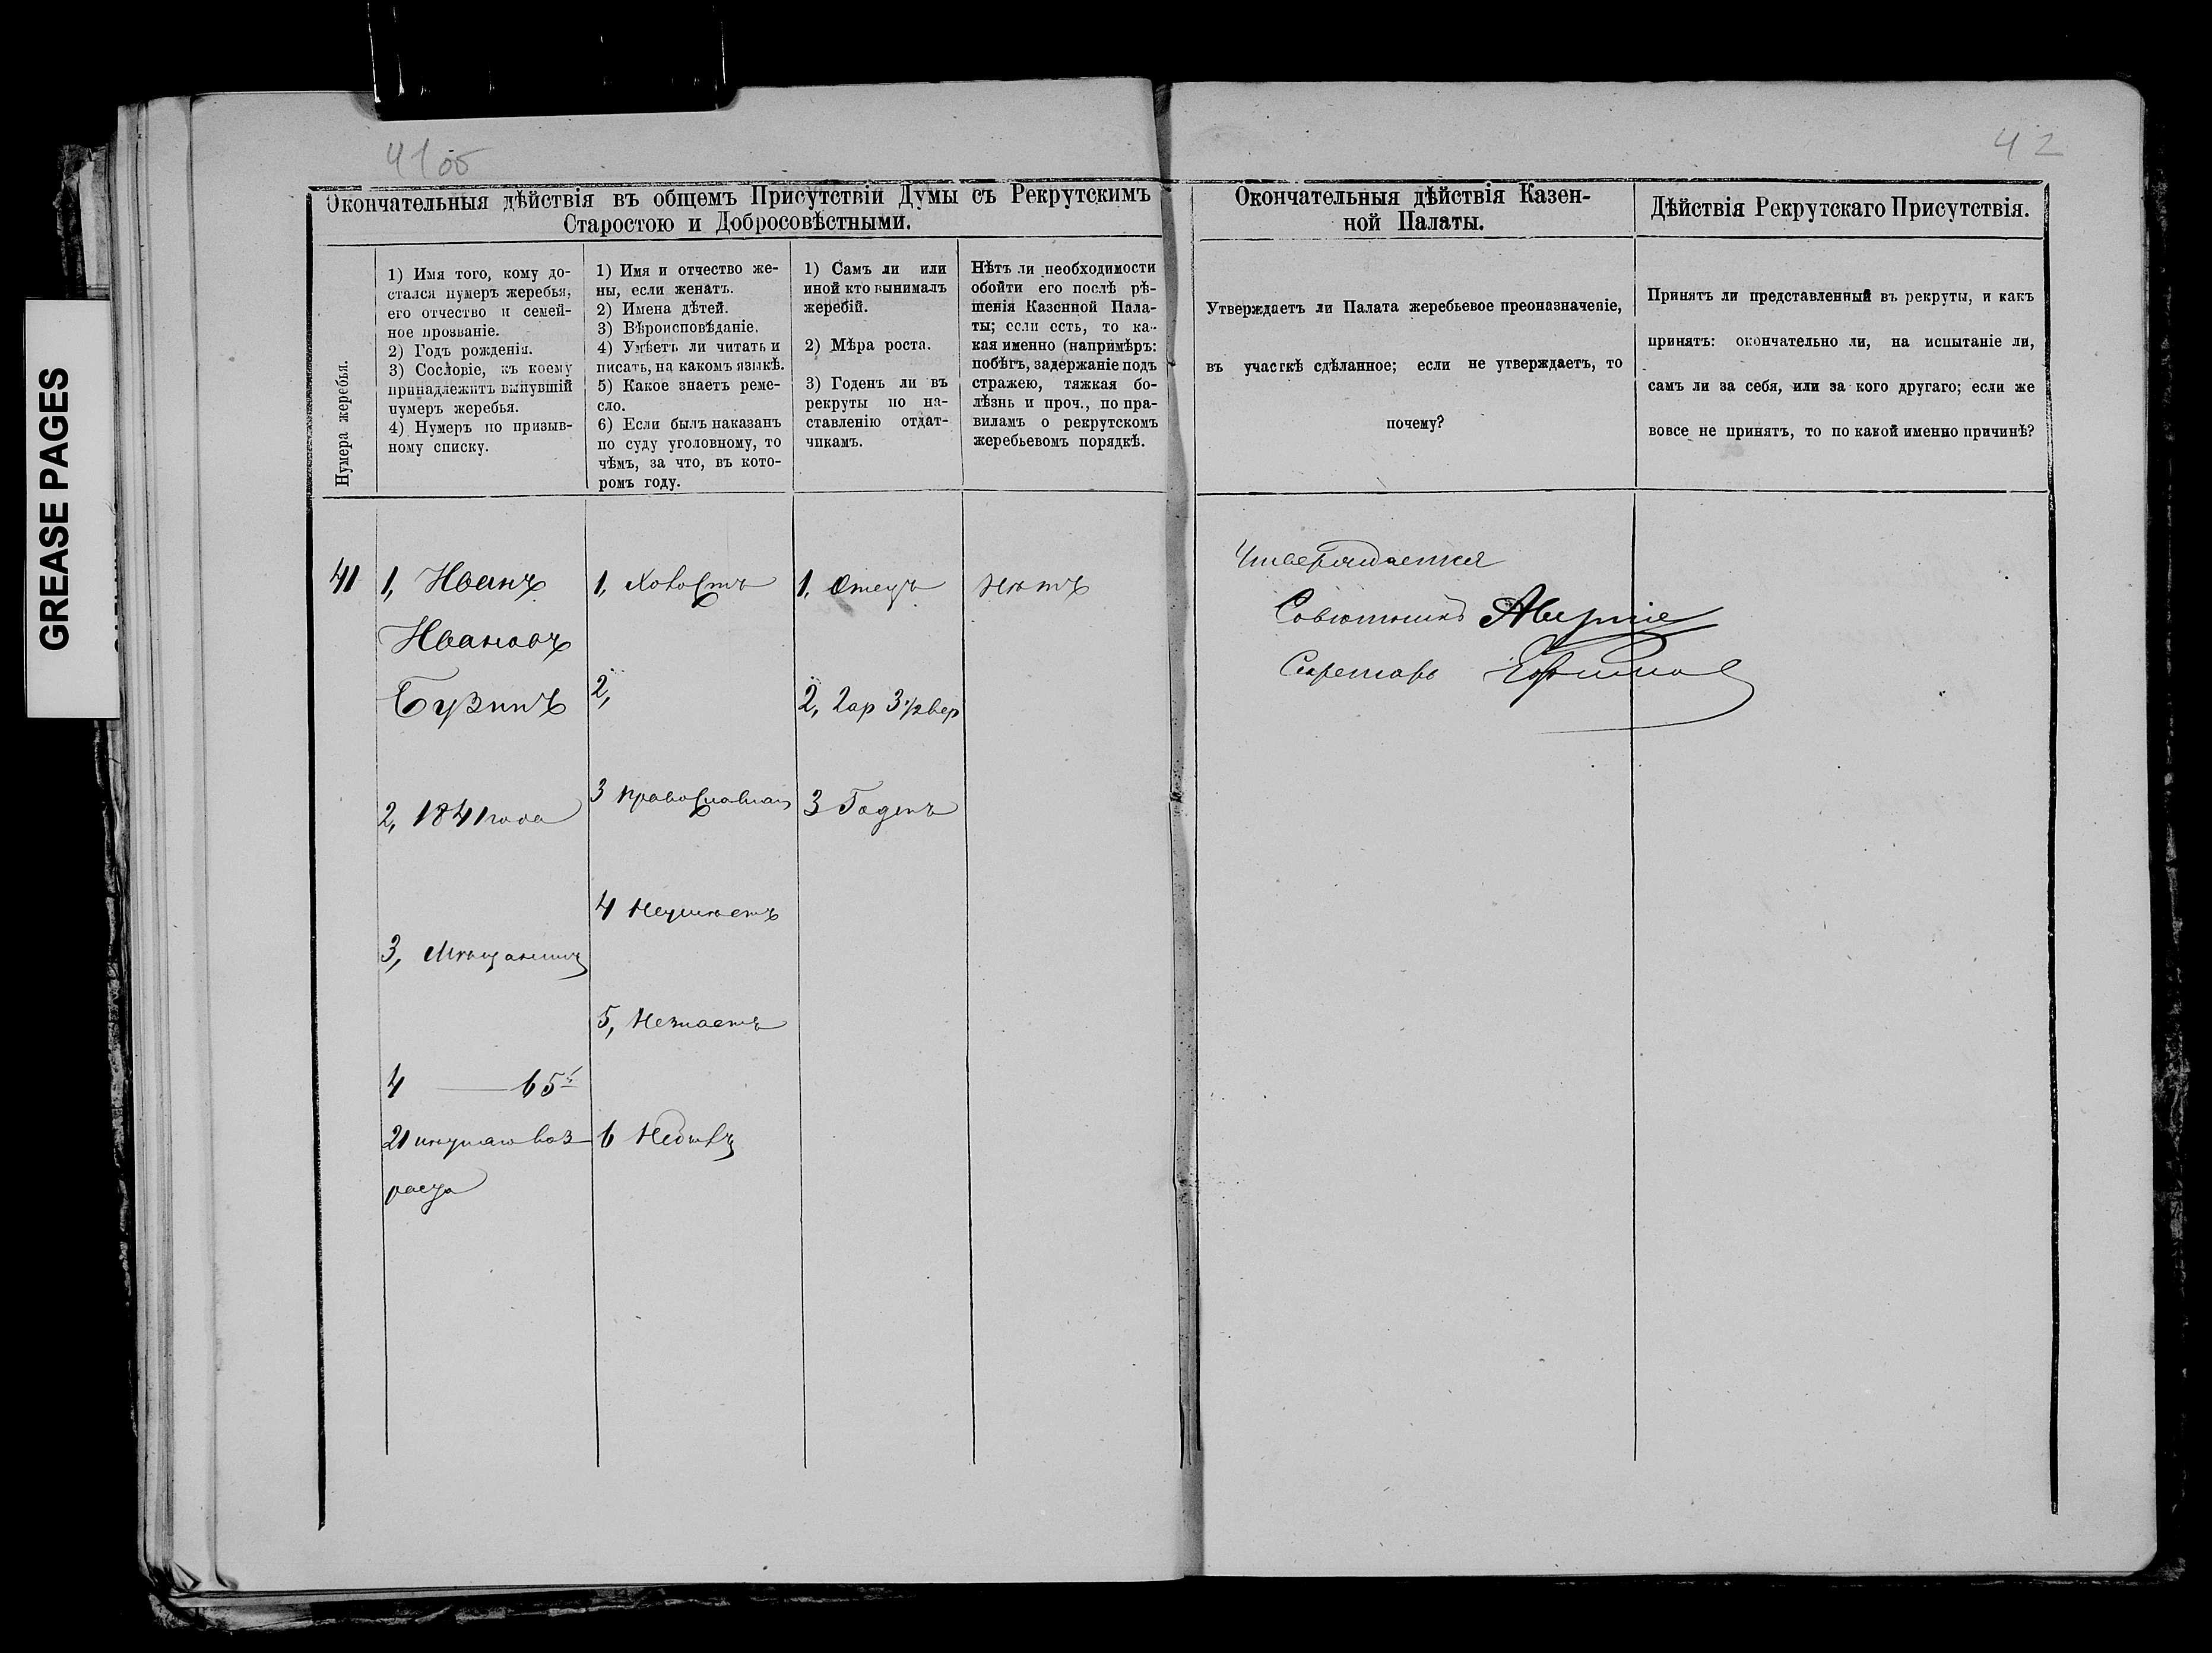 GREASE PAGES
41об
42
Окончательныя дѣйствія въ общемъ Присутствіи Думы съ Рекрутскимъ
Старостою и Добросовѣстными.
Нумера жеребья.
1) Имя того, кому до-
стался нумеръ жеребья,
его отчество и семей-
ное прозваніе.
2) Годъ рожденія.
3) Сословіе, къ коему
принадлежитъ вынувшій
нумеръ жеребья.
4) Нумеръ по призыв-
ному списку.
1) Имя и отчество же-
ны, если женатъ.
2) Имена дѣтей.
3) Вѣроисповѣданіе.
4) Умѣетъ ли читать и
писать, на какомъ языкѣ.
5) Какое знаетъ реме-
сло.
6) Если былъ наказанъ
по суду уголовному, то
чѣмъ, за что, въ кото-
ромъ году.
1) Самъ ли или
иной кто вынималъ
жеребій.
2) Мѣра роста.
3) Годенъ ли въ
рекруты по на-
ставленію отдат-
чикамъ.
Нѣтъ ли необходимости
обойти его послѣ рѣ-
шенія Казенной Пала-
ты; если есть, то ка-
кая именно (напримѣръ:
побѣгъ, задержаніе подъ
стражею, тяжкая бо-
лѣзнь и проч., по пра-
виламъ о рекрутскомъ
жеребьевомъ порядкѣ.
Окончательныя дѣйствія Казен-
ной Палаты.
Утверждаетъ ли Палата жеребьевое преоназначеніе,
въ участкѣ сдѣланное; если не утверждаетъ, то
почему?
Дѣйствія Рекрутскаго Присутствія.
Принятъ ли представленный въ рекруты, и какъ
принятъ: окончательно ли, на испытаніе ли,
самъ ли за себя, или за кого другаго; если же
вовсе не принятъ, то по какой именно причинѣ?
41
1, Иванъ
Ивановъ
Бузинъ
2, 1841 года
3, Мѣщанинъ
4 — 65й
21 воз
раста
1, Холостъ
2,
3 православнаго
4 Неумѣетъ
5, Незнаетъ
6 Небылъ
1, Отецъ
2, 2 ар 3 1/2 вер
3 Годенъ
Нѣтъ
Утверждается
Совѣтникъ
Секретарь